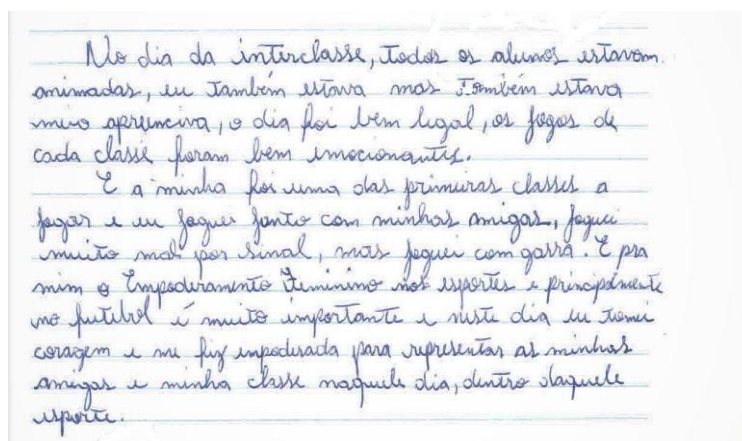 No dia da interclasse, todos os alunos estavam
animadas, eu também estava mas também estava
meio apreenciva, o dia foi bem legal, os jogos de
cada classe foram bem emocionantes.
E a minha foi uma das primeiras classes a
jogar e eu joguei junto com minhas amigas, joguei
muito mal por sinal, mas joguei com garra. E pra
mim o Empoderamento Feminino nos esportes e principalmente
no futebol é muito importante e neste dia eu tomei
coragem e me fiz empoderada para representar as minhas
amigas e minha classe naquele dia, dentro daquele
esporte.